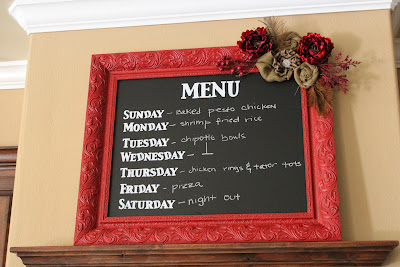 MENU
SUNDAY - Baked pesto chicken
MONDAY - shrimp fried rice
TUESDAY - chipotle bowls
WEDNESDAY -
THURSDAY - chicken rings & tator tots
FRIDAY - pizza
SATURDAY - night out